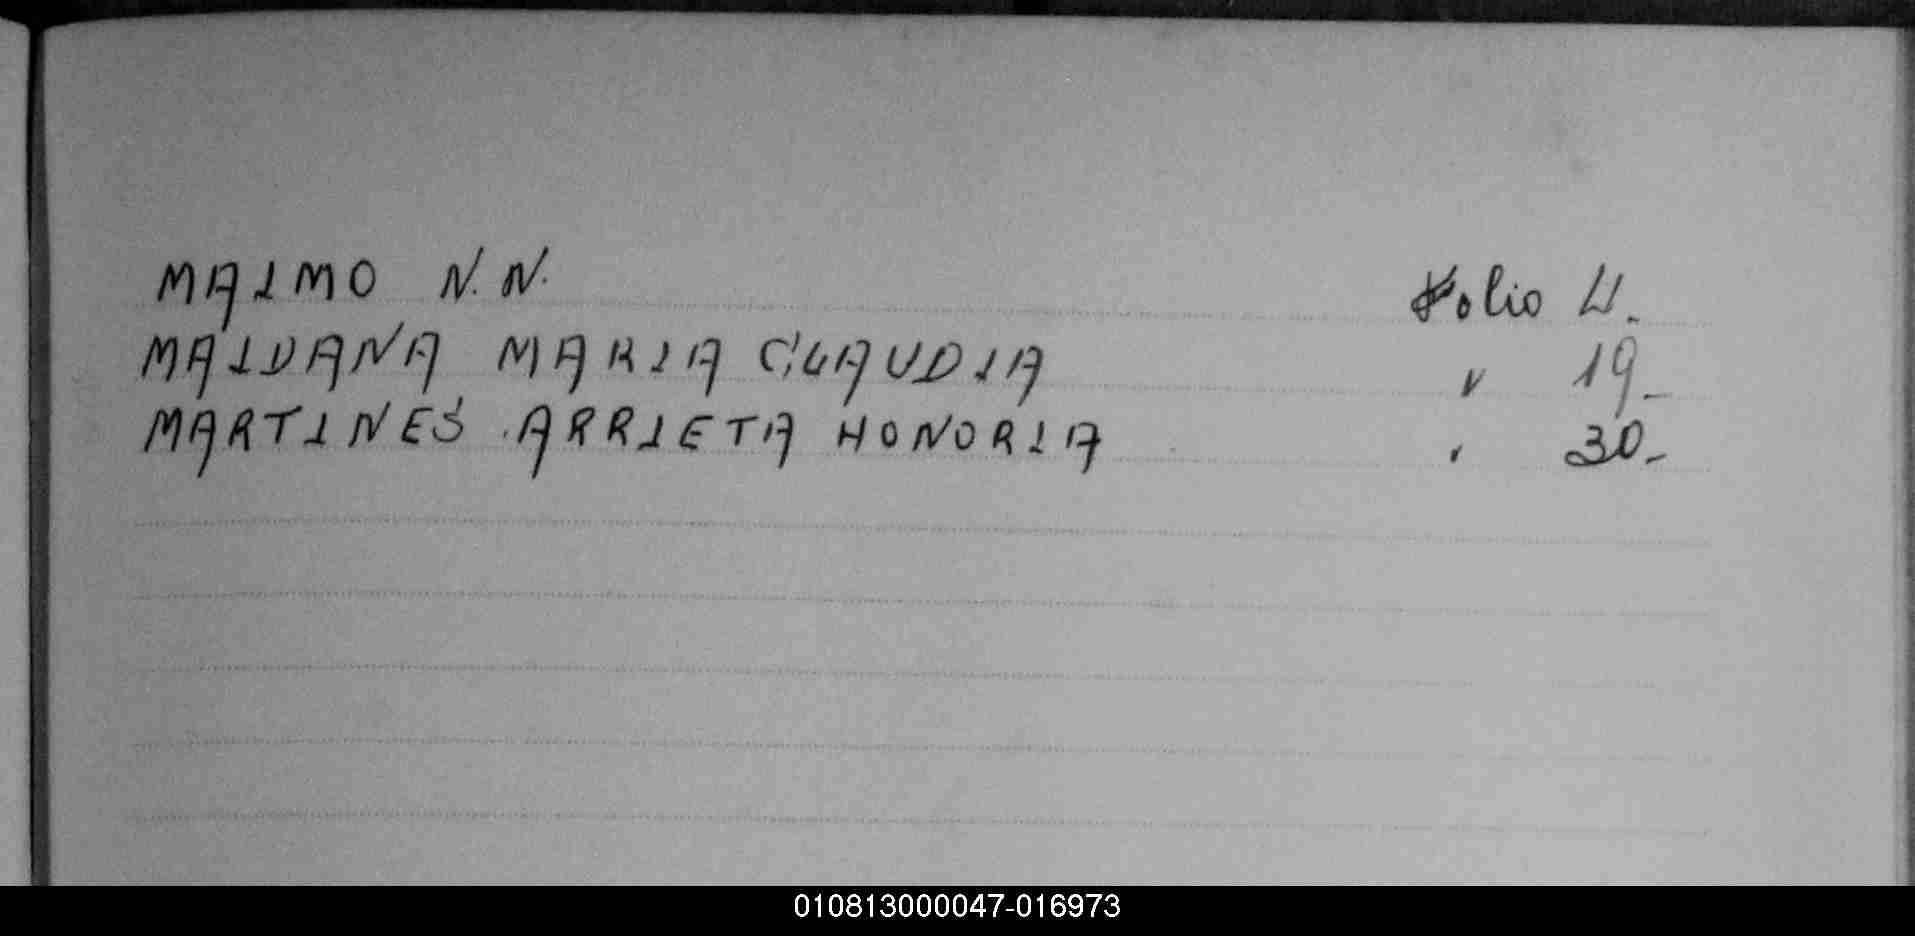 MAIMO N.N. Folio 4.
MAIDANA MARIA CLAUDIA " 19_
MARTINES ARRIETA HONORIA " 30_
010813000047-016973